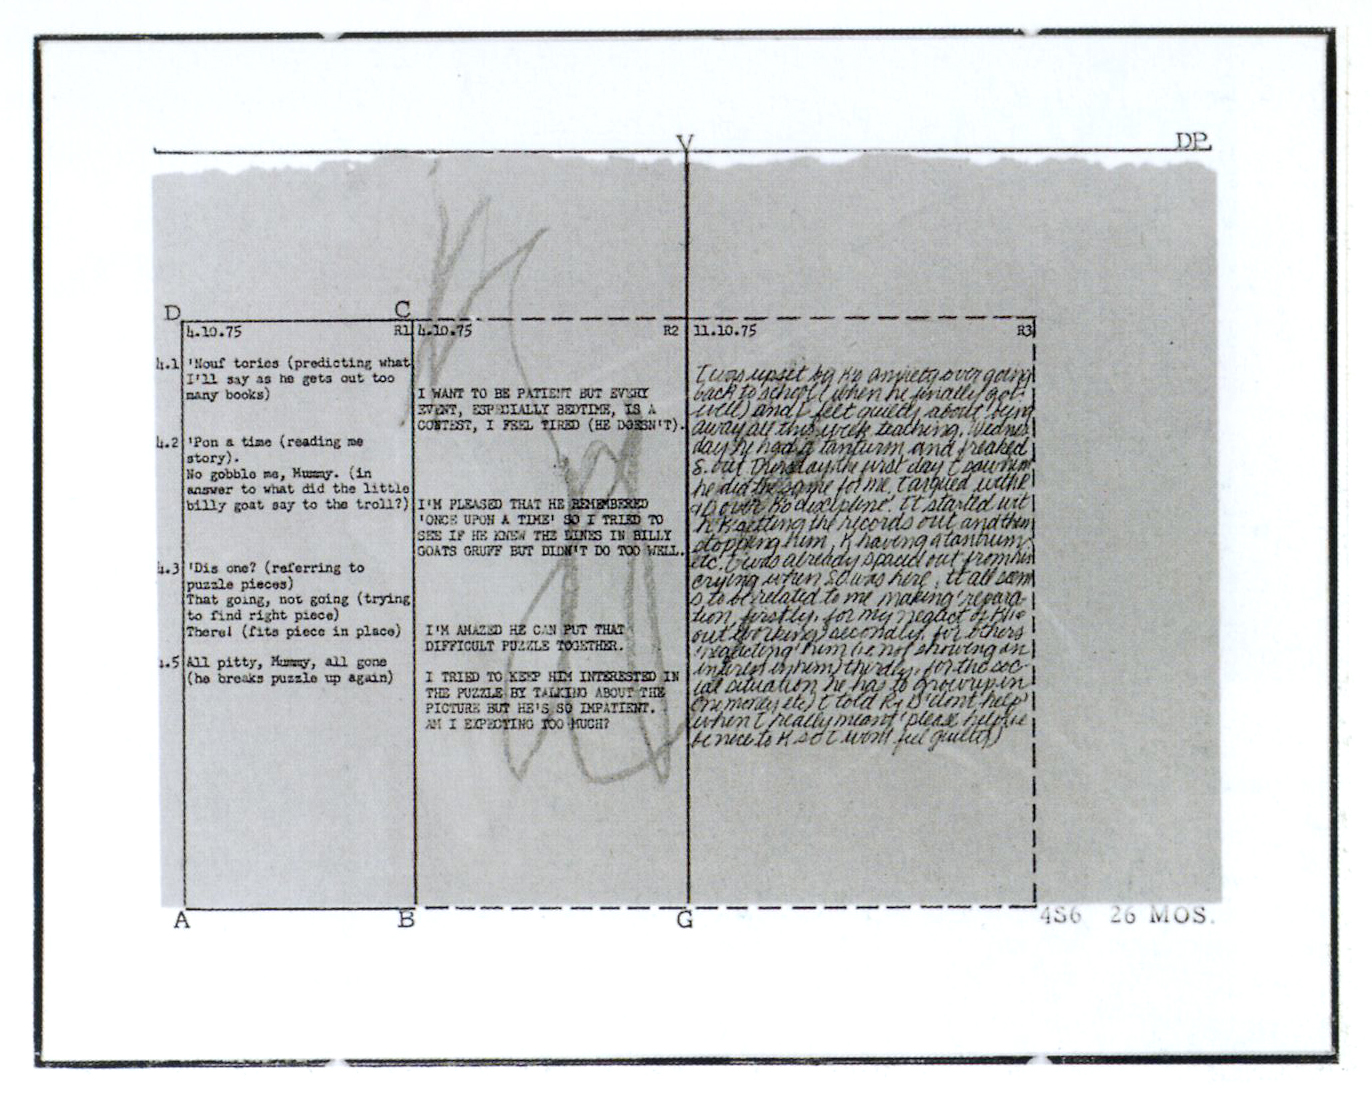 V
DP.
D
C
4.10.75
R1
4.1 'Nouf tories (predicting what
I'll say as he gets out too
many books)
4.2 'Pon a time (reading me
story).
No gobble me, Mummy. (in
answer to what did the little
billy goat say to the troll?)
4.3 'Dis one? (referring to
puzzle pieces)
That going, not going (trying
to find right piece)
There! (fits piece in place)
4.5 All pitty, Mummy, all gone
(he breaks puzzle up again)
4.10.75
R2
I WANT TO BE PATIENT BUT EVERY
EVENT, ESPECIALLY BEDTIME, IS A
CONTEST, I FEEL TIRED (HE DOESN'T).
I'M PLEASED THAT HE REMEMBERED
'ONCE UPON A TIME' SO I TRIED TO
SEE IF HE KNEW THE LINES IN BILLY
GOATS GRUFF BUT DIDN'T DO TOO WELL.
I'M AMAZED HE CAN PUT THAT
DIFFICULT PUZZLE TOGETHER.
I TRIED TO KEEP HIM INTERESTED IN
THE PUZZLE BY TALKING ABOUT THE
PICTURE BUT HE'S SO IMPATIENT.
AM I EXPECTING TOO MUCH?
11.10.75
R3
I was upset by K's anxiety over going
back to school (when he finally got
well) and I felt guilty about being
away all this week teaching. Wednes
day he had a tantrum and freaked
S. out Thursday, the first day I saw him
he did the same for me, I argued with
over K's discipline'. It started wit
h K getting the records out and then
stopping him, K having a tantrum
etc. I was already spaced out from him
crying when S was here, it all seem
s to be related to me making 'repara-
tion, firstly, for my neglect of K (ie
out working) secondly, for others
'neglecting' him (ie not showing an
interest in him) thirdly, for the soc-
ial situation he has to grow up in
(ie money etc) I told R 'don't help'
when I really meant 'please help (ie
be nice to K so I won't feel guilty)
A
B
G
4S6 26 MOS.